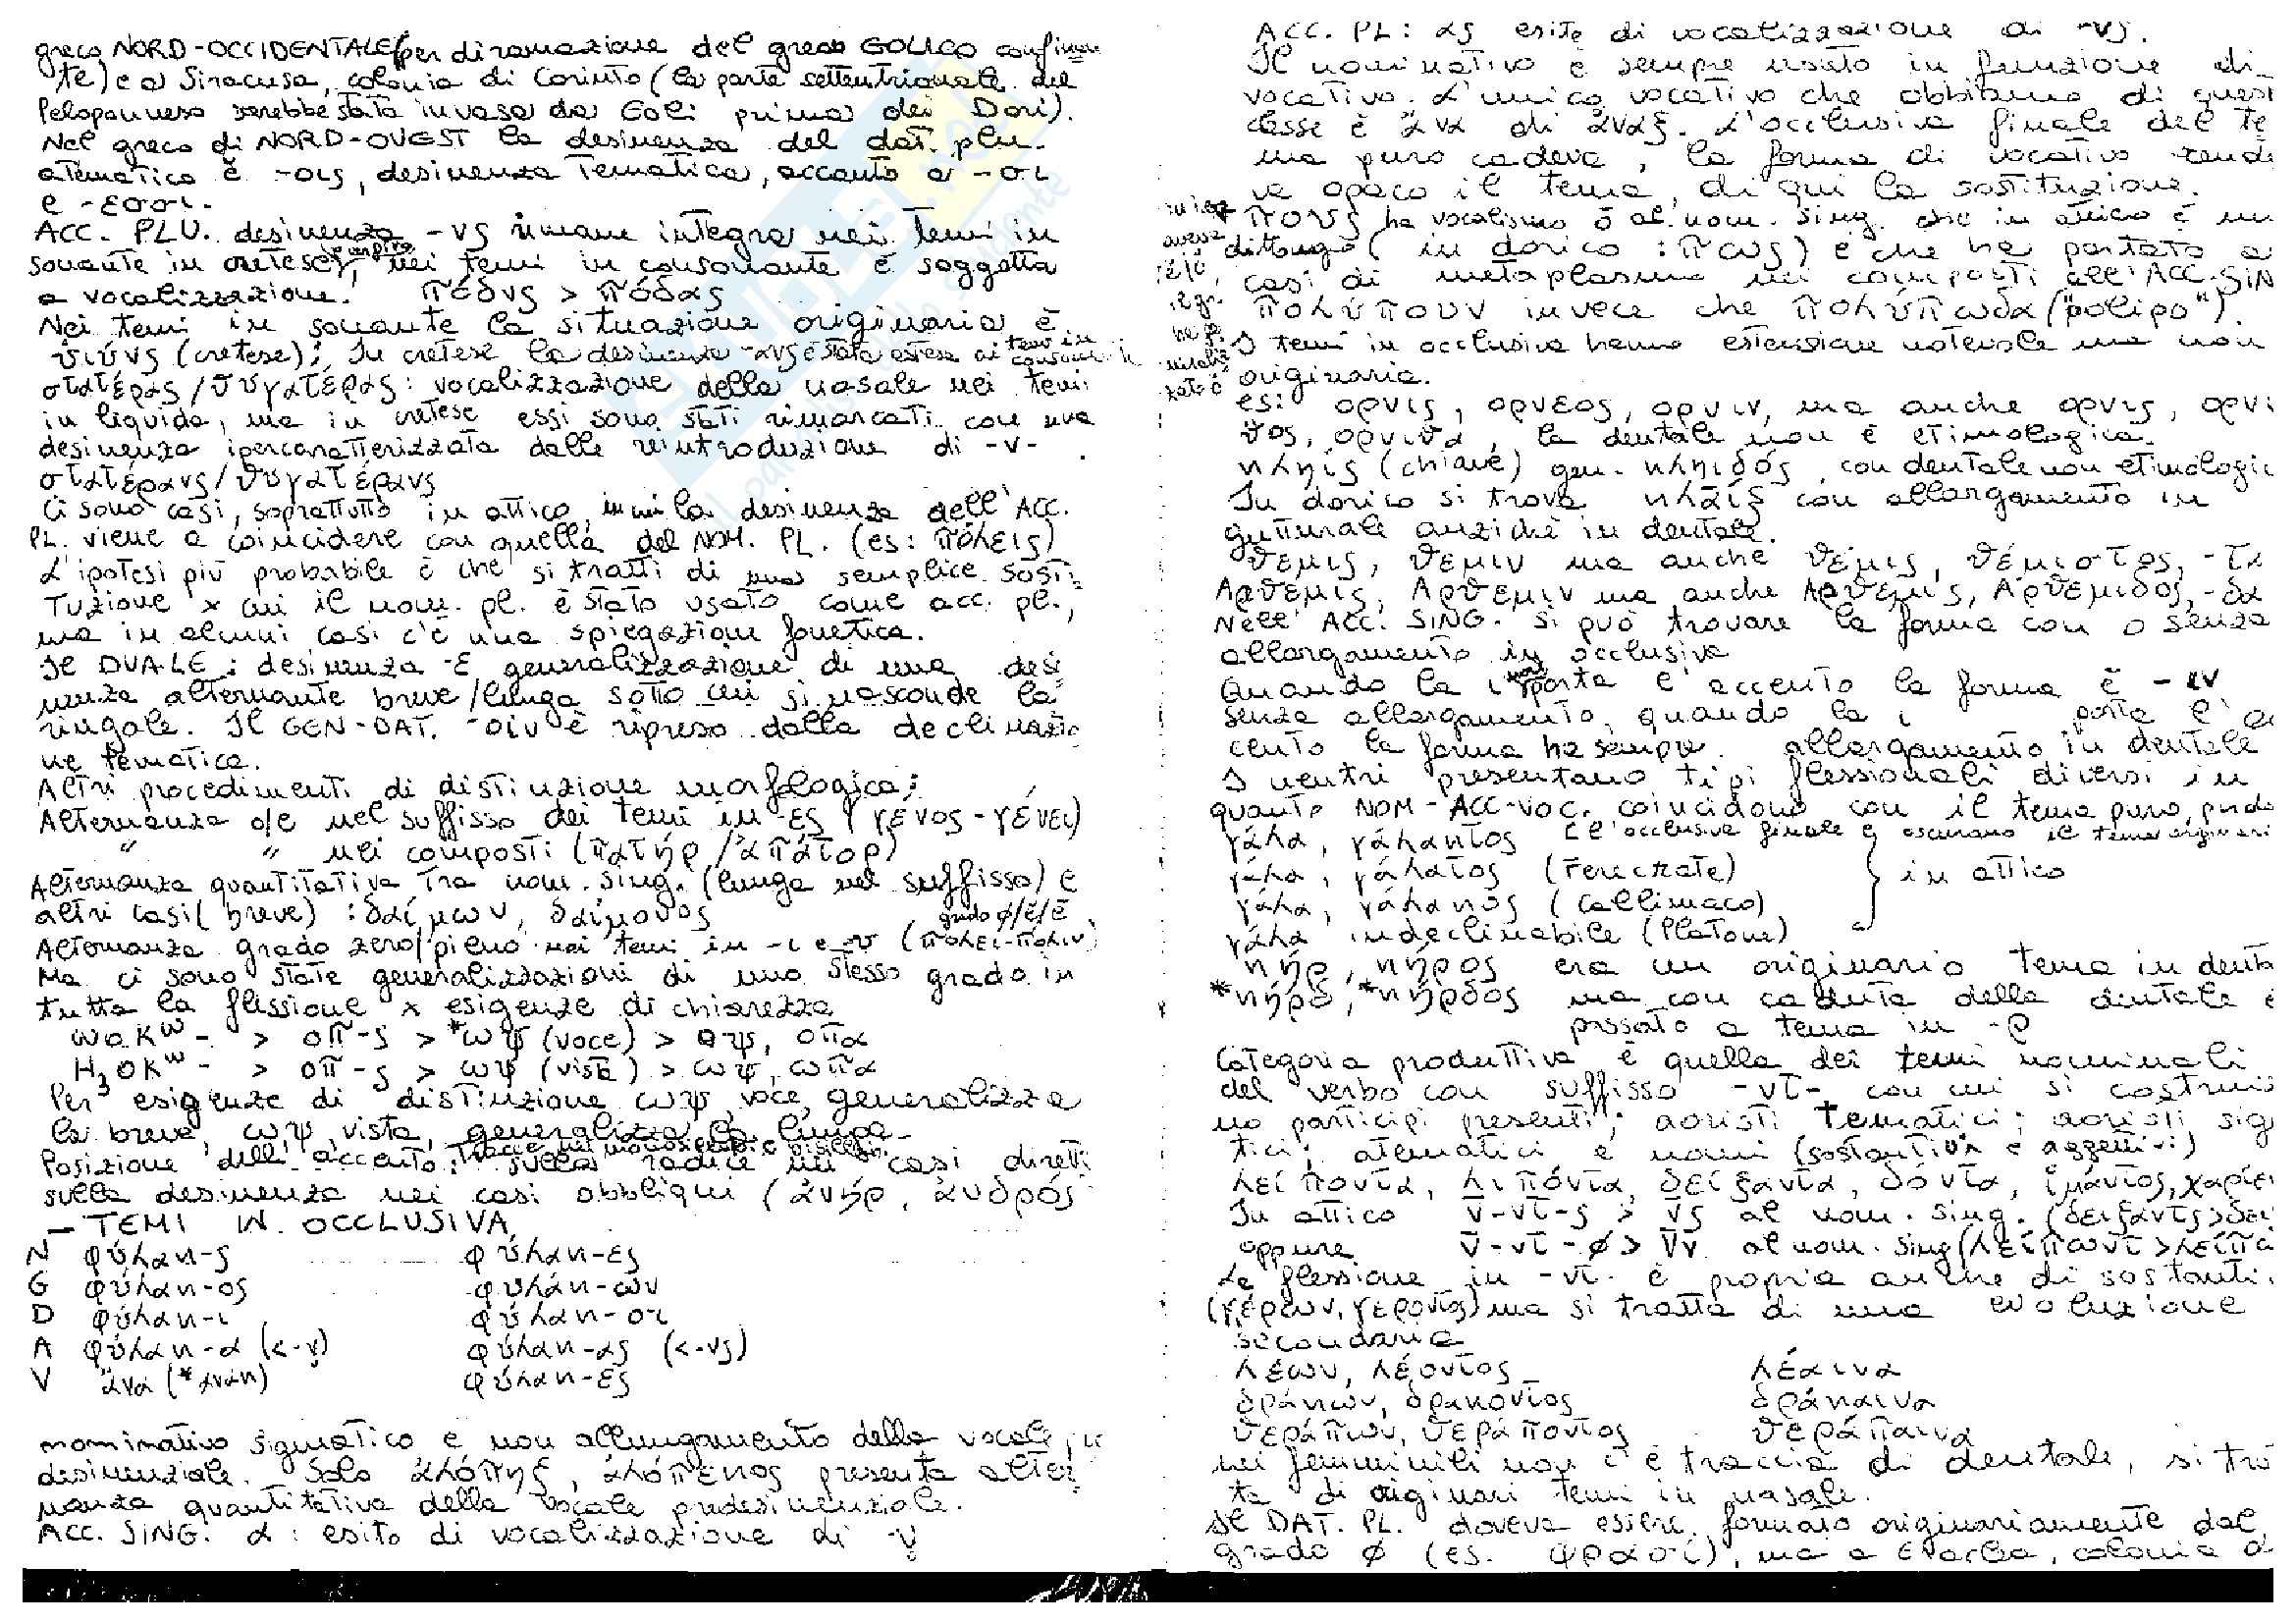 greco NORD-OCCIDENTALE (per diramazione del greco EOLICO confinan
te) e a Siracusa, colonia di Corinto (la parte settentrionale del
Peloponneso sarebbe stata invasa da Eoli prima dei Dori).
Nel greco di NORD-OVEST la desinenza del dat. plu.
atematico è -οις, desinenza tematica, accanto a -σι
e -εσσι.
ACC. PLU. desinenza -νς rimane integra nei temi in
sonante in cretese, nei temi in consonante è soggetta
a vocalizzazione. πόδνς > πόδας
Nei temi in sonante la situazione originaria è
υιύνς (cretese); In cretese la desinenza -ανς è stata estesa ai temi in conson.
στατέρας/θυγατέρας: vocalizzazione della nasale nei temi
in liquida, ma in cretese essi sono stati rimarcati con una
desinenza ipercaratterizzata dalla reintroduzione di -ν-.
στατέρανς/θυγατέρανς
Ci sono casi, soprattutto in attico, in cui la desinenza dell'ACC.
PL. viene a coincidere con quella del NOM. PL. (es: πόλεις)
L'ipotesi più probabile è che si tratti di una semplice sosti-
tuzione x cui il nom. pl. è stato usato come acc. pl.,
ma in alcuni casi c'è una spiegazione fonetica.
Il DUALE: desinenza -ε generalizzazione di una desi
nenza alternante breve/lunga sotto cui si nasconde la
ringale. Il GEN-DAT. -οιν è ripreso dalla declinazio
ne tematica.
Altri procedimenti di distinzione morfologica:
Alternanza o/e nel suffisso dei temi in -ες (γένος-γένει)
" " nei composti (πατήρ/ἀπάτορ)
Alternanza quantitativa tra nom. sing. (lunga nel suffisso) e
altri casi (breve): δαίμων, δαίμονος
grado φ/ē/ĕ
Alternanza grado zero/pieno nei temi in -ι e -υ (πόλει-πόλιν)
Ma ci sono state generalizzazioni di uno stesso grado in
tutta la flessione x esigenze di chiarezza
wokʷ- > οπ-ς > *ωψ (voce) > οψ, οπα
H₃okʷ- > οπ-ς > ωψ (vista) > ωψ, ωπα
Per esigenze di distinzione ωψ, voce, generalizza
la breve, ωψ, vista, generalizza la lunga.
Posizione dell'accento: sulla radice nei casi diretti
sulla desinenza nei casi obbliqui (ἀνήρ, ἀνδρός
- TEMI IN OCCLUSIVA
N φύλακ-ς φύλακ-ες
G φύλακ-ος φυλάκ-ων
D φύλακ-ι φύλακ-σι
A φύλακ-α (<-ν̥) φύλακ-ας (<-νς)
V ἄνα (*ανακ) φύλακ-ες
nominativo sigmatico e non allungamento della vocale
desinenziale. Solo ἀλόπηξ, ἀλόπεκος presenta alter
nanza quantitativa della vocale predesinenziale.
ACC. SING. α: esito di vocalizzazione di -ν̥
ACC. PL: ας esito di vocalizzazione di -νς.
Il nominativo è sempre usato in funzione di
vocativo. L'unico vocativo che abbiamo di quest
casse è ἄνα di ἄναξ. L'occlusiva finale del te
ma puro cadeva, la forma di vocativo rende
va opaco il tema, di qui la sostituzione.
πους ha vocalismo ō al nom. sing. che in attico è un
dittongo (in dorico: πως) e che ha portato a
casi di metaplasmo nei composti all'ACC. SIN
πολύπουν invece che πολύπωδα ("polipo").
I temi in occlusiva hanno estensione notevole ma non
originaria.
es: ορνις, ορνεος, ορνιν, ma anche ορνις, ορνι
θος, ορνιθα, la dentale non è etimologica.
κληίς (chiave) gen. κληιδός, con dentale non etimologic
In dorico si trova κλᾱίξ con allargamento in
gutturale anziché in dentale.
θέμις, θέμιν ma anche θέμις, θέμιστος, -τα
Αρθεμις, Αρθεμιν ma anche Αρθεμις, Αρθεμιδος, -δα
Nell'ACC. SING. si può trovare la forma con o senza
allargamento in occlusiva
Quando la ι non porta l'accento la forma è -ιν
senza allargamento, quando la ι porta l'ac
cento la forma ha sempre allargamento in dentale
I neutri presentano tipi flessionali diversi in
quanto NOM-ACC-VOC. coincidono con il tema puro, perdo
l'occlusiva finale e oscurano il tema originari
γάλα, γάλακτος
γάλα, γάλατος (Ferecrate)
in attico
γάλα, γάλακος (Callimaco)
γάλα indeclinabile (Platone)
κήρ, κήρος era un originario tema in denta
*κήρδ, *κήρδος ma con caduta della dentale è
passato a tema in -ρ
Categoria produttiva è quella dei temi nominali
del verbo con suffisso -ντ- con cui si costrui
no participi presenti; aoristi tematici; aoristi sig
tici; atematici e nomi (sostantivi e aggettivi)
λείποντα, λιπόντα, δείξαντα, δόντα, ἱμάντος, χαρίε
In attico V̄-ντ-ς > V̄ς al nom. sing. (δειξαντς > δει
oppure V̄-ντ-φ > V̄ν al nom. sing (λείπωντ > λείπω
La flessione in -ντ è propria anche di sostanti.
(γέρων, γέροντος) ma si tratta di una evoluzione
secondaria
λέων, λέοντος λέαινα
δράκων, δρακοντος δράκαινα
θεράπων, θεράποντος θεράπαινα
nei femminili non c'è traccia di dentale, si trat
ta di originari temi in nasale.
Il DAT. PL. doveva essere formato originariamente dal
grado φ (es. φρασί), ma a Eraclea, colonia d